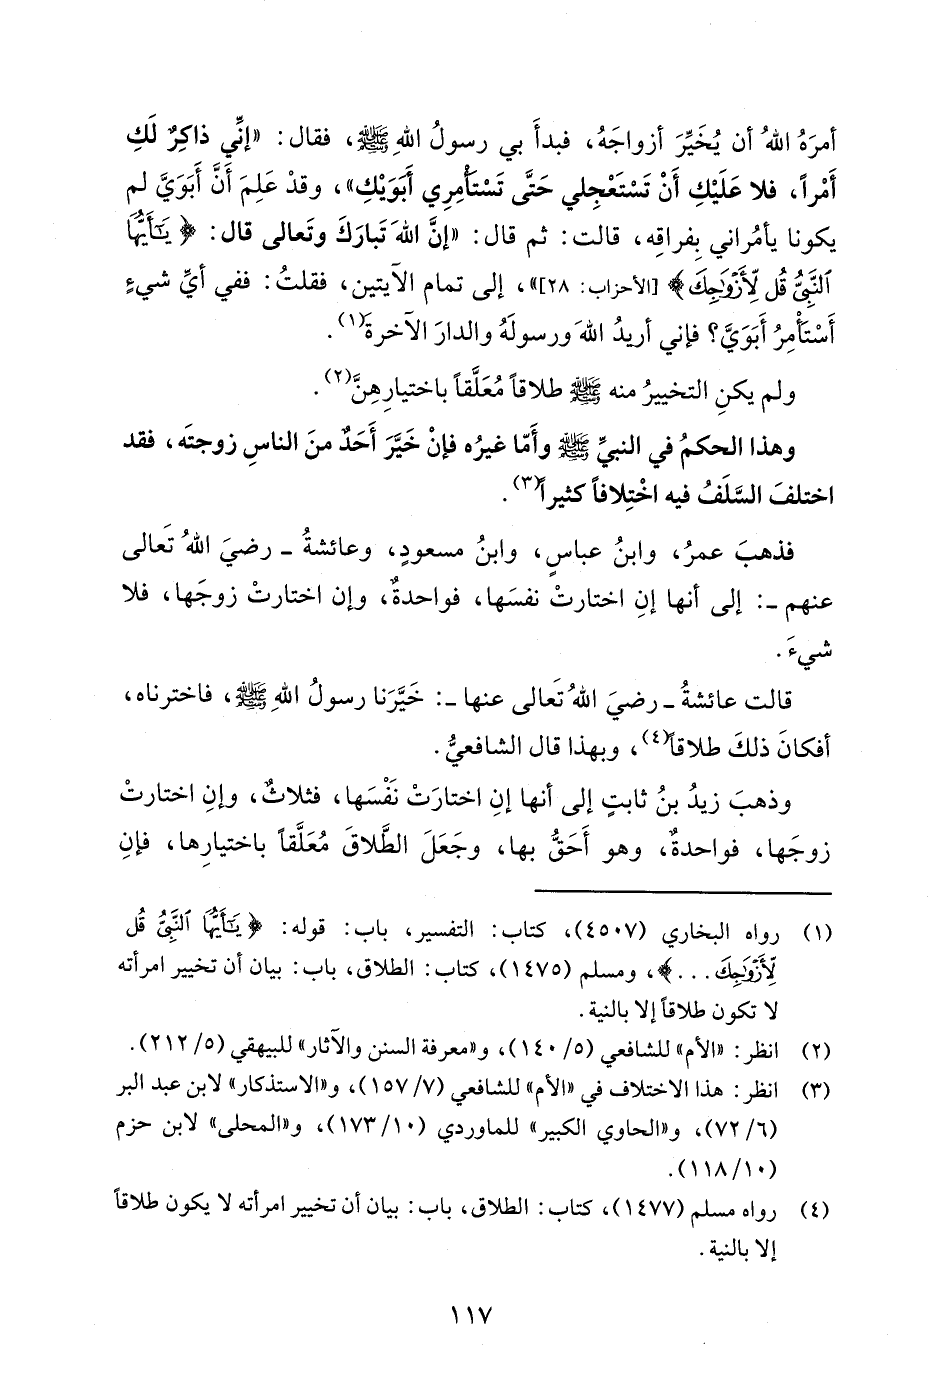 أمرَهُ اللهُ أن يُخَيِّرَ أزواجَهُ، فبدأَ بي رسولُ اللهِ ﷺ، فقال: «إنِّي ذاكِرٌ لَكِ
أَمْراً، فلا عَلَيْكِ أَنْ تَسْتَعْجِلي حَتَّى تَسْتَأْمِرِي أَبَوَيْكِ»، وقدْ عَلِمَ أَنَّ أَبَوَيَّ لم
يكونا يأمُراني بِفراقِه، قالت: ثم قال: «إنَّ اللهَ تَبارَكَ وتَعالى قال: ﴿يَٰٓأَيُّهَا
ٱلنَّبِيُّ قُل لِّأَزْوَٰجِكَ﴾ [الأحزاب: ٢٨]»، إلى تمام الآيتين، فقلتُ: ففي أيِّ شيءٍ
أَسْتَأْمِرُ أَبَوَيَّ؟ فإني أريدُ اللهَ ورسولَهُ والدارَ الآخرةَ(١).
ولم يكنِ التخييرُ منه ﷺ طلاقاً مُعَلَّقاً باختيارِهِنَّ(٢).
وهذا الحكمُ في النبيِّ ﷺ وأَمّا غيرُه فإنْ خَيَّرَ أَحَدٌ منَ الناسِ زوجتَه، فقد
اختلفَ السَّلَفُ فيه اخْتِلافاً كثيراً(٣).
فذهبَ عمرُ، وابنُ عباسٍ، وابنُ مسعودٍ، وعائشةُ ـ رضيَ اللهُ تَعالى
عنهم ـ: إلى أنها إنِ اختارتْ نفسَها، فواحدةٌ، وإن اختارتْ زوجَها، فلا
شيءَ.
قالت عائشةُ ـ رضيَ اللهُ تَعالى عنها ـ: خَيَّرَنا رسولُ اللهِ ﷺ، فاخترناه،
أفكانَ ذلكَ طلاقاً(٤)، وبهذا قال الشافعيُّ.
وذهبَ زيدُ بنُ ثابتٍ إلى أنها إنِ اختارَتْ نَفْسَها، فثلاثٌ، وإنِ اختارتْ
زوجَها، فواحدةٌ، وهو أَحَقُّ بها، وجَعَلَ الطَّلاقَ مُعَلَّقاً باختيارِها، فإنِ
(١) رواه البخاري (٤٥٠٧)، كتاب: التفسير، باب: قوله: ﴿يَٰٓأَيُّهَا ٱلنَّبِيُّ قُل
لِّأَزْوَٰجِكَ...﴾، ومسلم (١٤٧٥)، كتاب: الطلاق، باب: بيان أن تخيير امرأته
لا تكون طلاقاً إلا بالنية.
(٢) انظر: «الأم» للشافعي (٥/ ١٤٠)، و«معرفة السنن والآثار» للبيهقي (٥/ ٢١٢).
(٣) انظر: هذا الاختلاف في «الأم» للشافعي (٧/ ١٥٧)، و«الاستذكار» لابن عبد البر
(٦/ ٧٢)، و«الحاوي الكبير» للماوردي (١٠/ ١٧٣)، و«المحلى» لابن حزم
(١٠/ ١١٨).
(٤) رواه مسلم (١٤٧٧)، كتاب: الطلاق، باب: بيان أن تخيير امرأته لا يكون طلاقاً
إلا بالنية.
١١٧